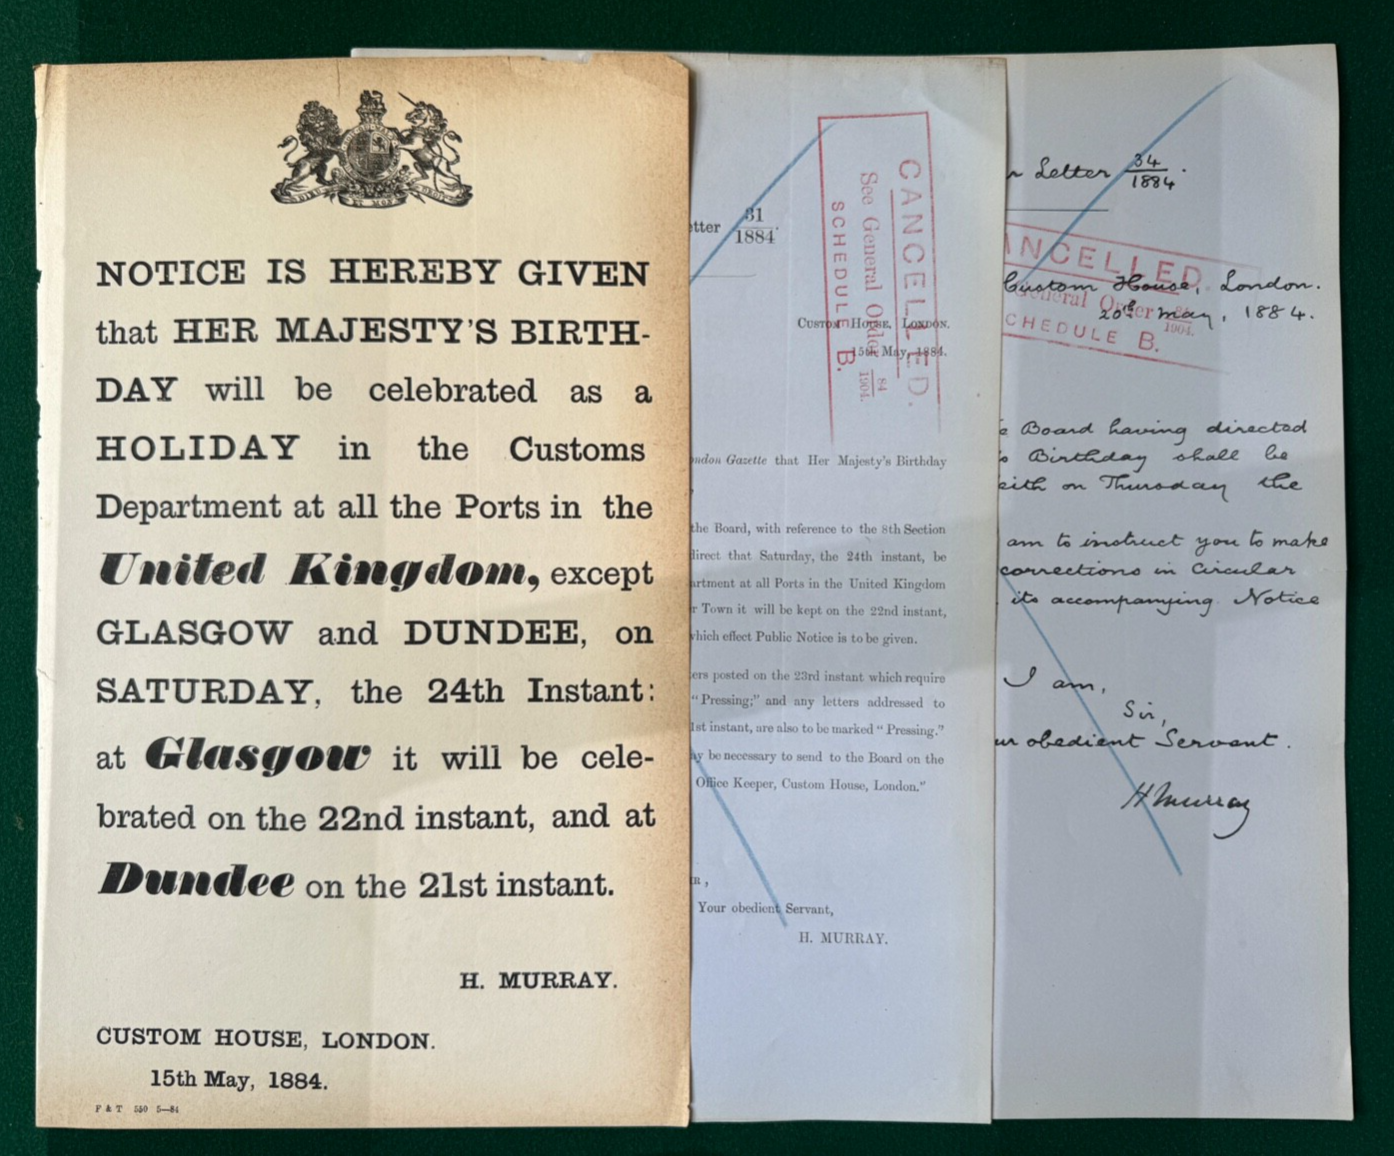 NOTICE IS HEREBY GIVEN
that HER MAJESTY'S BIRTH-
DAY will be celebrated as a
HOLIDAY in the Customs
Department at all the Ports in the
United Kingdom, except
GLASGOW and DUNDEE, on
SATURDAY, the 24th Instant:
at Glasgow it will be cele-
brated on the 22nd instant, and at
Dundee on the 21st instant.
H. MURRAY.
CUSTOM HOUSE, LONDON.
15th May, 1884.
F & T 550 5—84
etter 31/1884.
CANCELLED.
See General Order 84/1904.
SCHEDULE B.
CUSTOM HOUSE, LONDON.
15th May, 1884.
ondon Gazette that Her Majesty's Birthday
the Board, with reference to the 8th Section
direct that Saturday, the 24th instant, be
artment at all Ports in the United Kingdom
r Town it will be kept on the 22nd instant,
which effect Public Notice is to be given.
ers posted on the 23rd instant which require
"Pressing;" and any letters addressed to
1st instant, are also to be marked "Pressing."
ay be necessary to send to the Board on the
Office Keeper, Custom House, London."
R,
Your obedient Servant,
H. MURRAY.
r Letter 34/1884.
ANCELLED.
General Order 84/1904.
CHEDULE B.
Custom House, London.
20th May, 1884.
e Board having directed
s Birthday shall be
eith on Thursday the
am to instruct you to make
corrections in Circular
its accompanying Notice
I am,
Sir,
ur obedient Servant.
H Murray